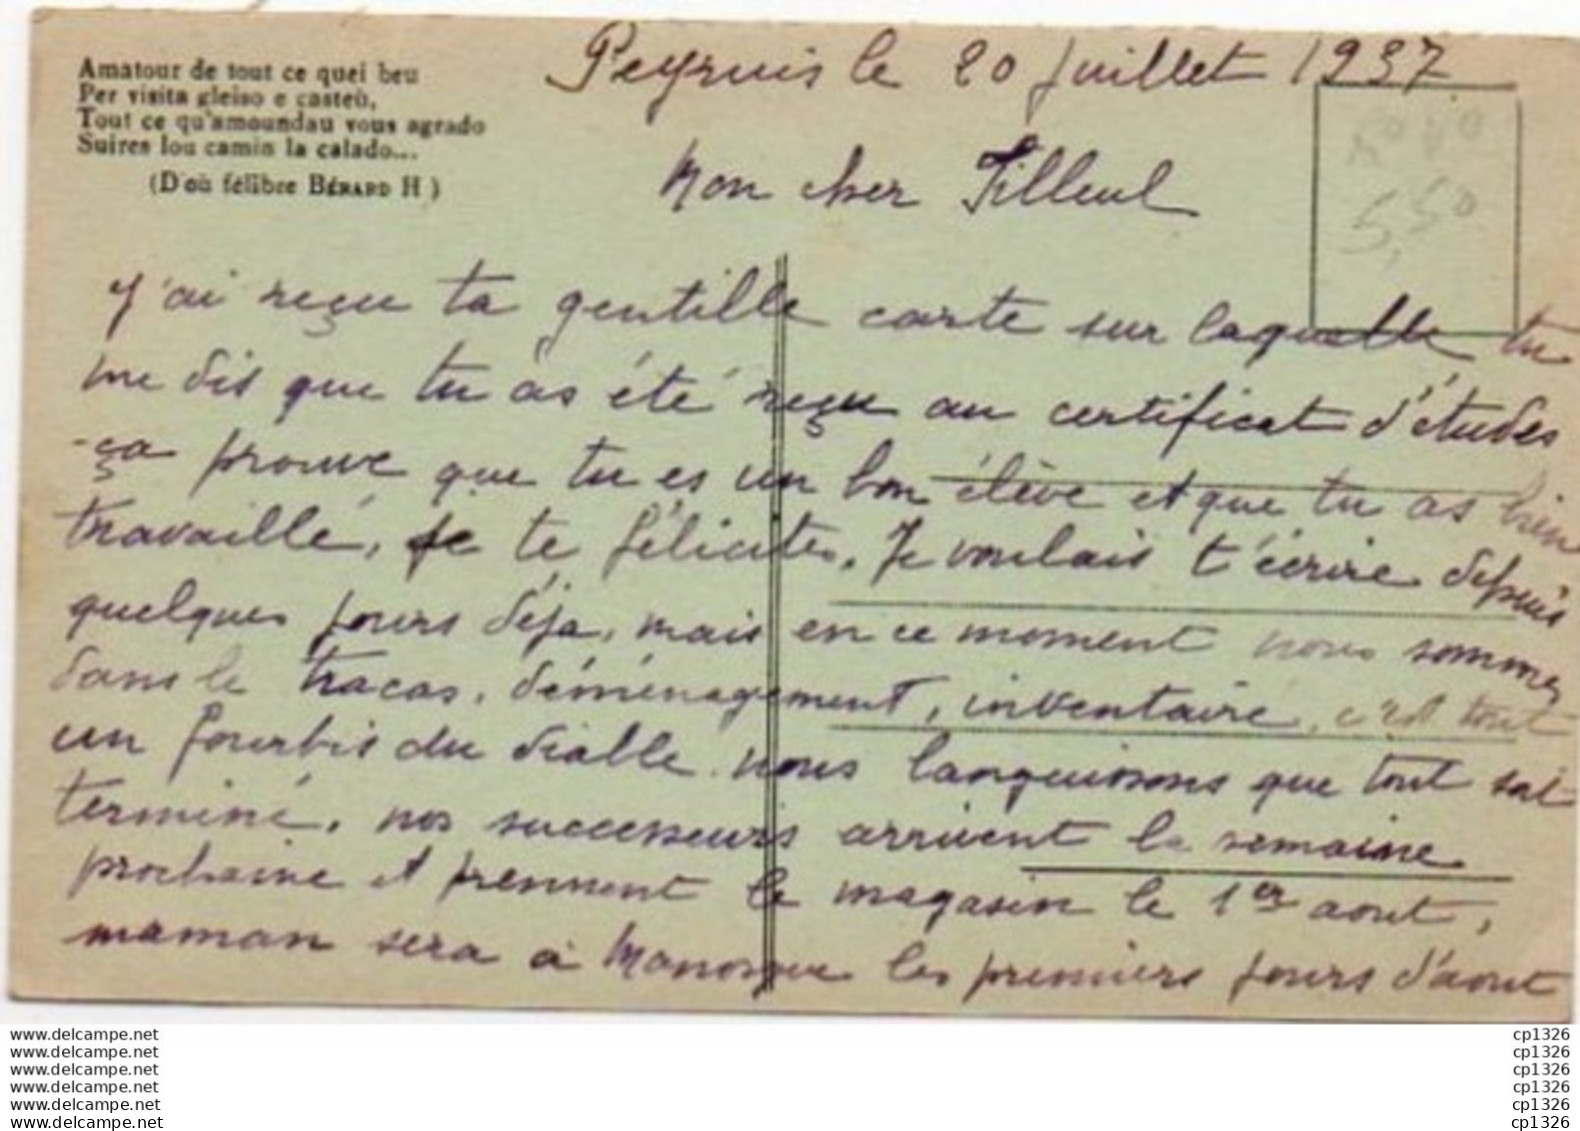 Amatour de tout ce quei beu
Per visita gleiso e casteù,
Tout ce qu'amoundau vous agrado
Suires lou camin la calado...
(D'où félibre BÉRARD H)
Peyruis le 20 juillet 1937
Mon cher Filleul
J'ai reçu ta gentille carte sur laquelle tu
me dis que tu as été reçu au certificat d'études
ça prouve que tu es un bon élève et que tu as bien
travaillé, je te félicites. Je voulais t'écrire depuis
quelques jours déja, mais en ce moment nous sommes
dans le tracas, déménagement, inventaire, c'est tout
un fourbis du diable. nous languissons que tout soit
terminé, nos successeurs arrivent la semaine
prochaine et prennent le magasin le 1er aout,
maman sera à Manosque les premiers jours d'aout
5,50
www.delcampe.net
www.delcampe.net
www.delcampe.net
www.delcampe.net
www.delcampe.net
www.delcampe.net
cp1326
cp1326
cp1326
cp1326
cp1326
cp1326